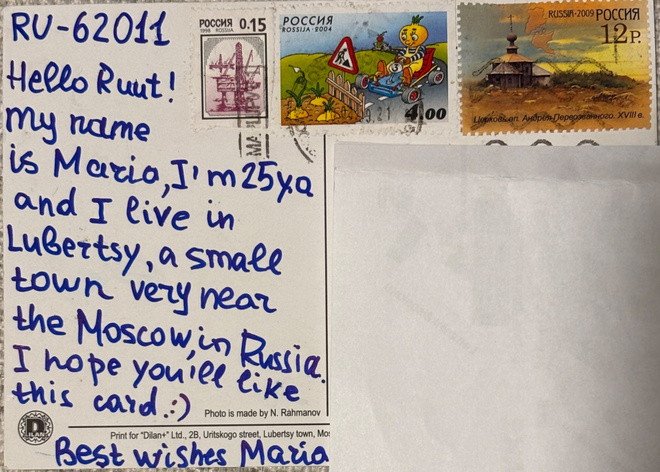 RU-62011
Hello Ruut!
My name
is Maria, I'm 25ya
and I live in
Lubertsy, a small
town very near
the Moscow, in Russia.
I hope you'ill like
this card :)
Best wishes Maria
РОССИЯ 0.15
1998 RUSSIA
РОССИЯ
ROSSIJA 2004
4.00
RUSSIA·2009 РОССИЯ
12Р.
Церковь ап. Андрея Первозванного. XVIII в.
9.21
Photo is made by N. Rahmanov
DILAN
Print for "Dilan+" Ltd., 2B, Uritskogo street, Lubertsy town, Mos